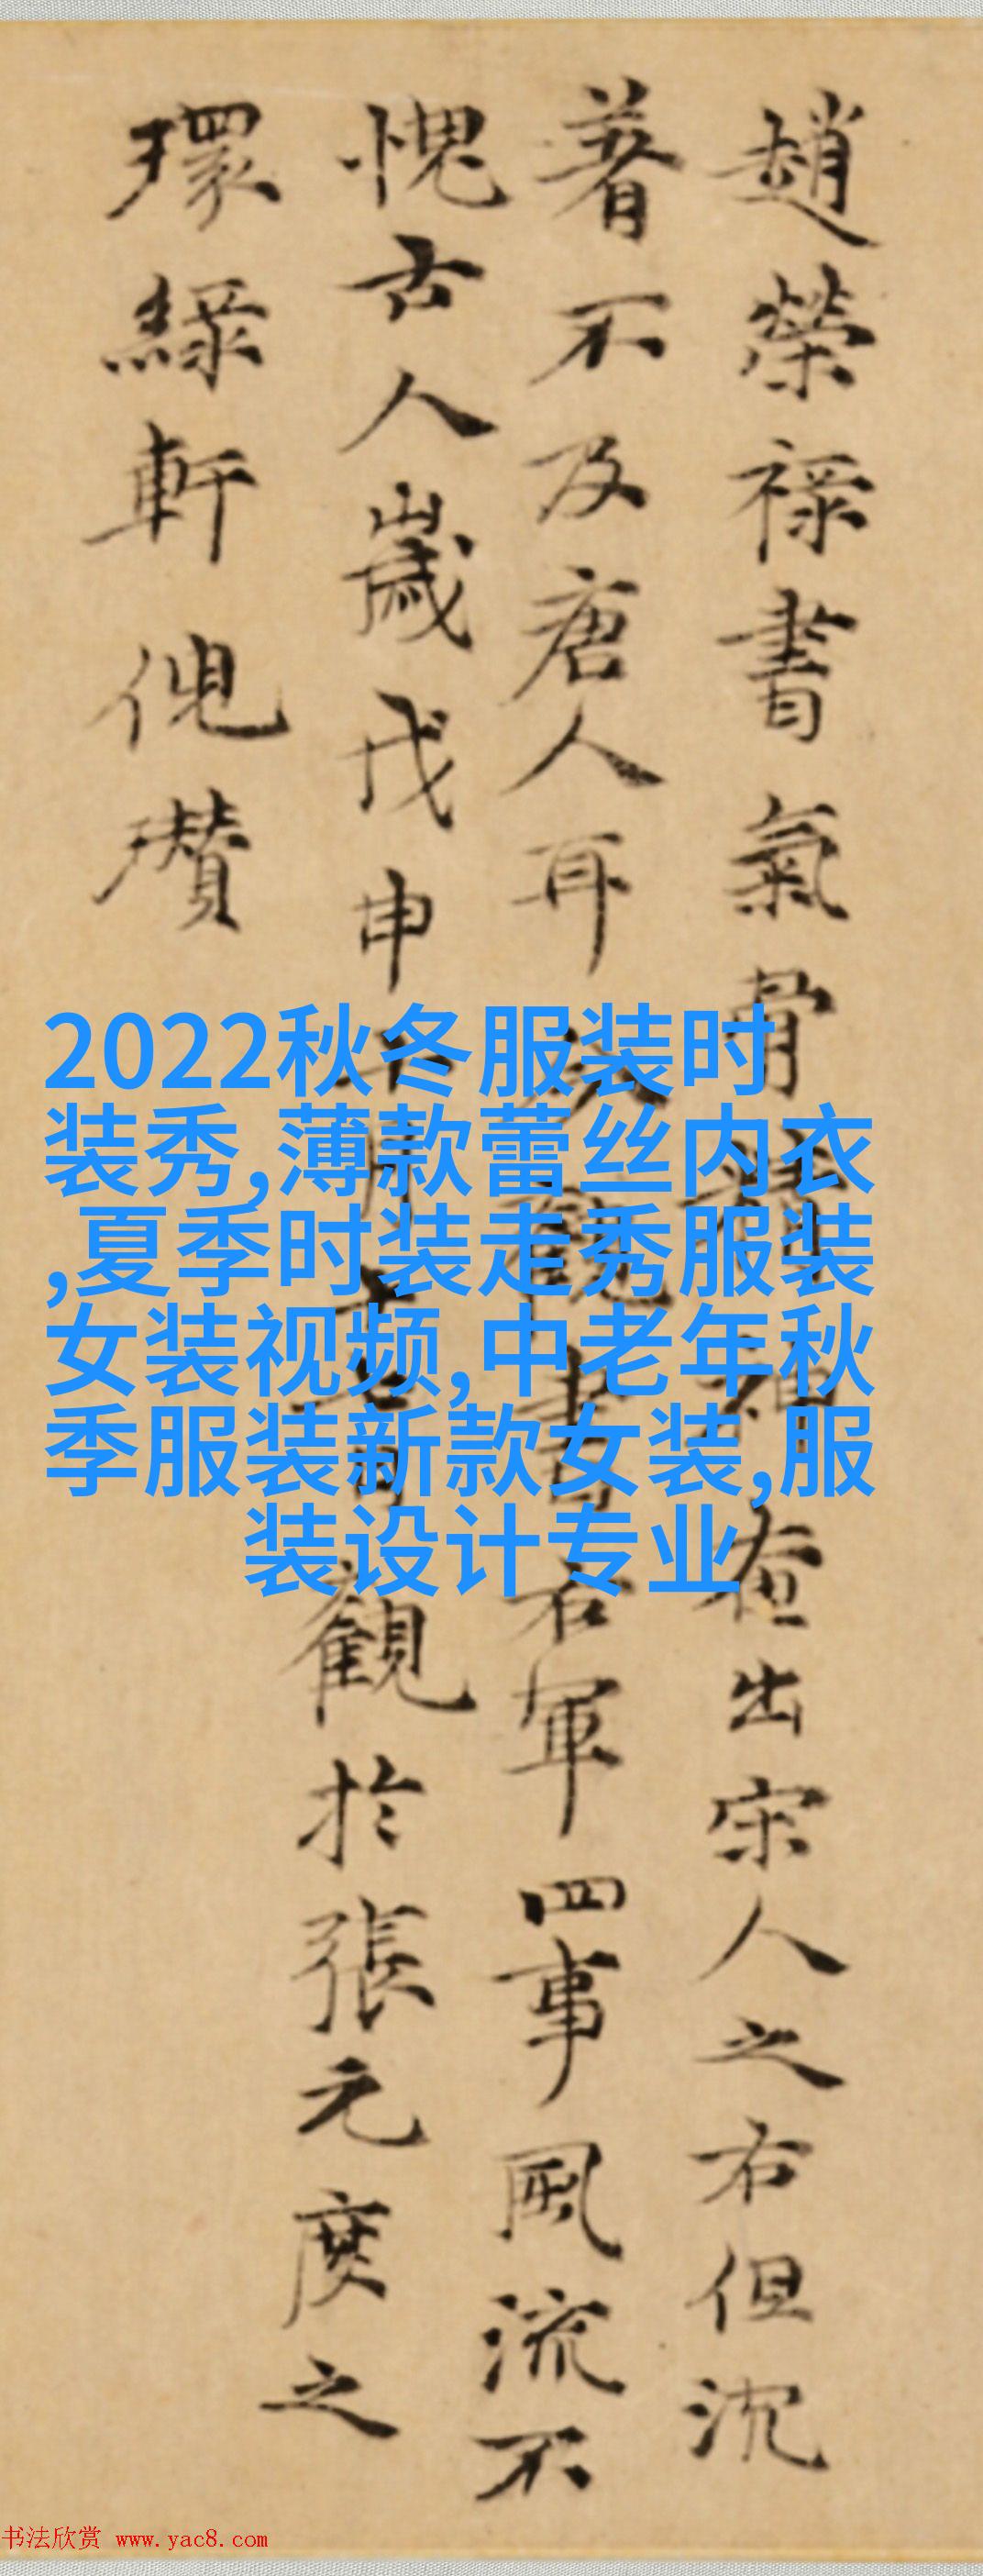 趙榮祿書氣骨
畫出宋人之右但沉
著不及唐人耳
書右軍四事風流不
愧古人歲戊申
觀於張元度之
環綠軒倪瓚
2022秋冬服装时
装秀,薄款蕾丝内衣
,夏季时装走秀服装
女装视频,中老年秋
季服装新款女装,服
装设计专业
书法欣赏 www.yac8.com